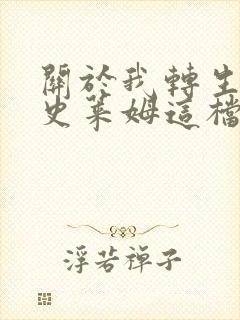 關於我轉生
史萊姆這檔
浮若禪子